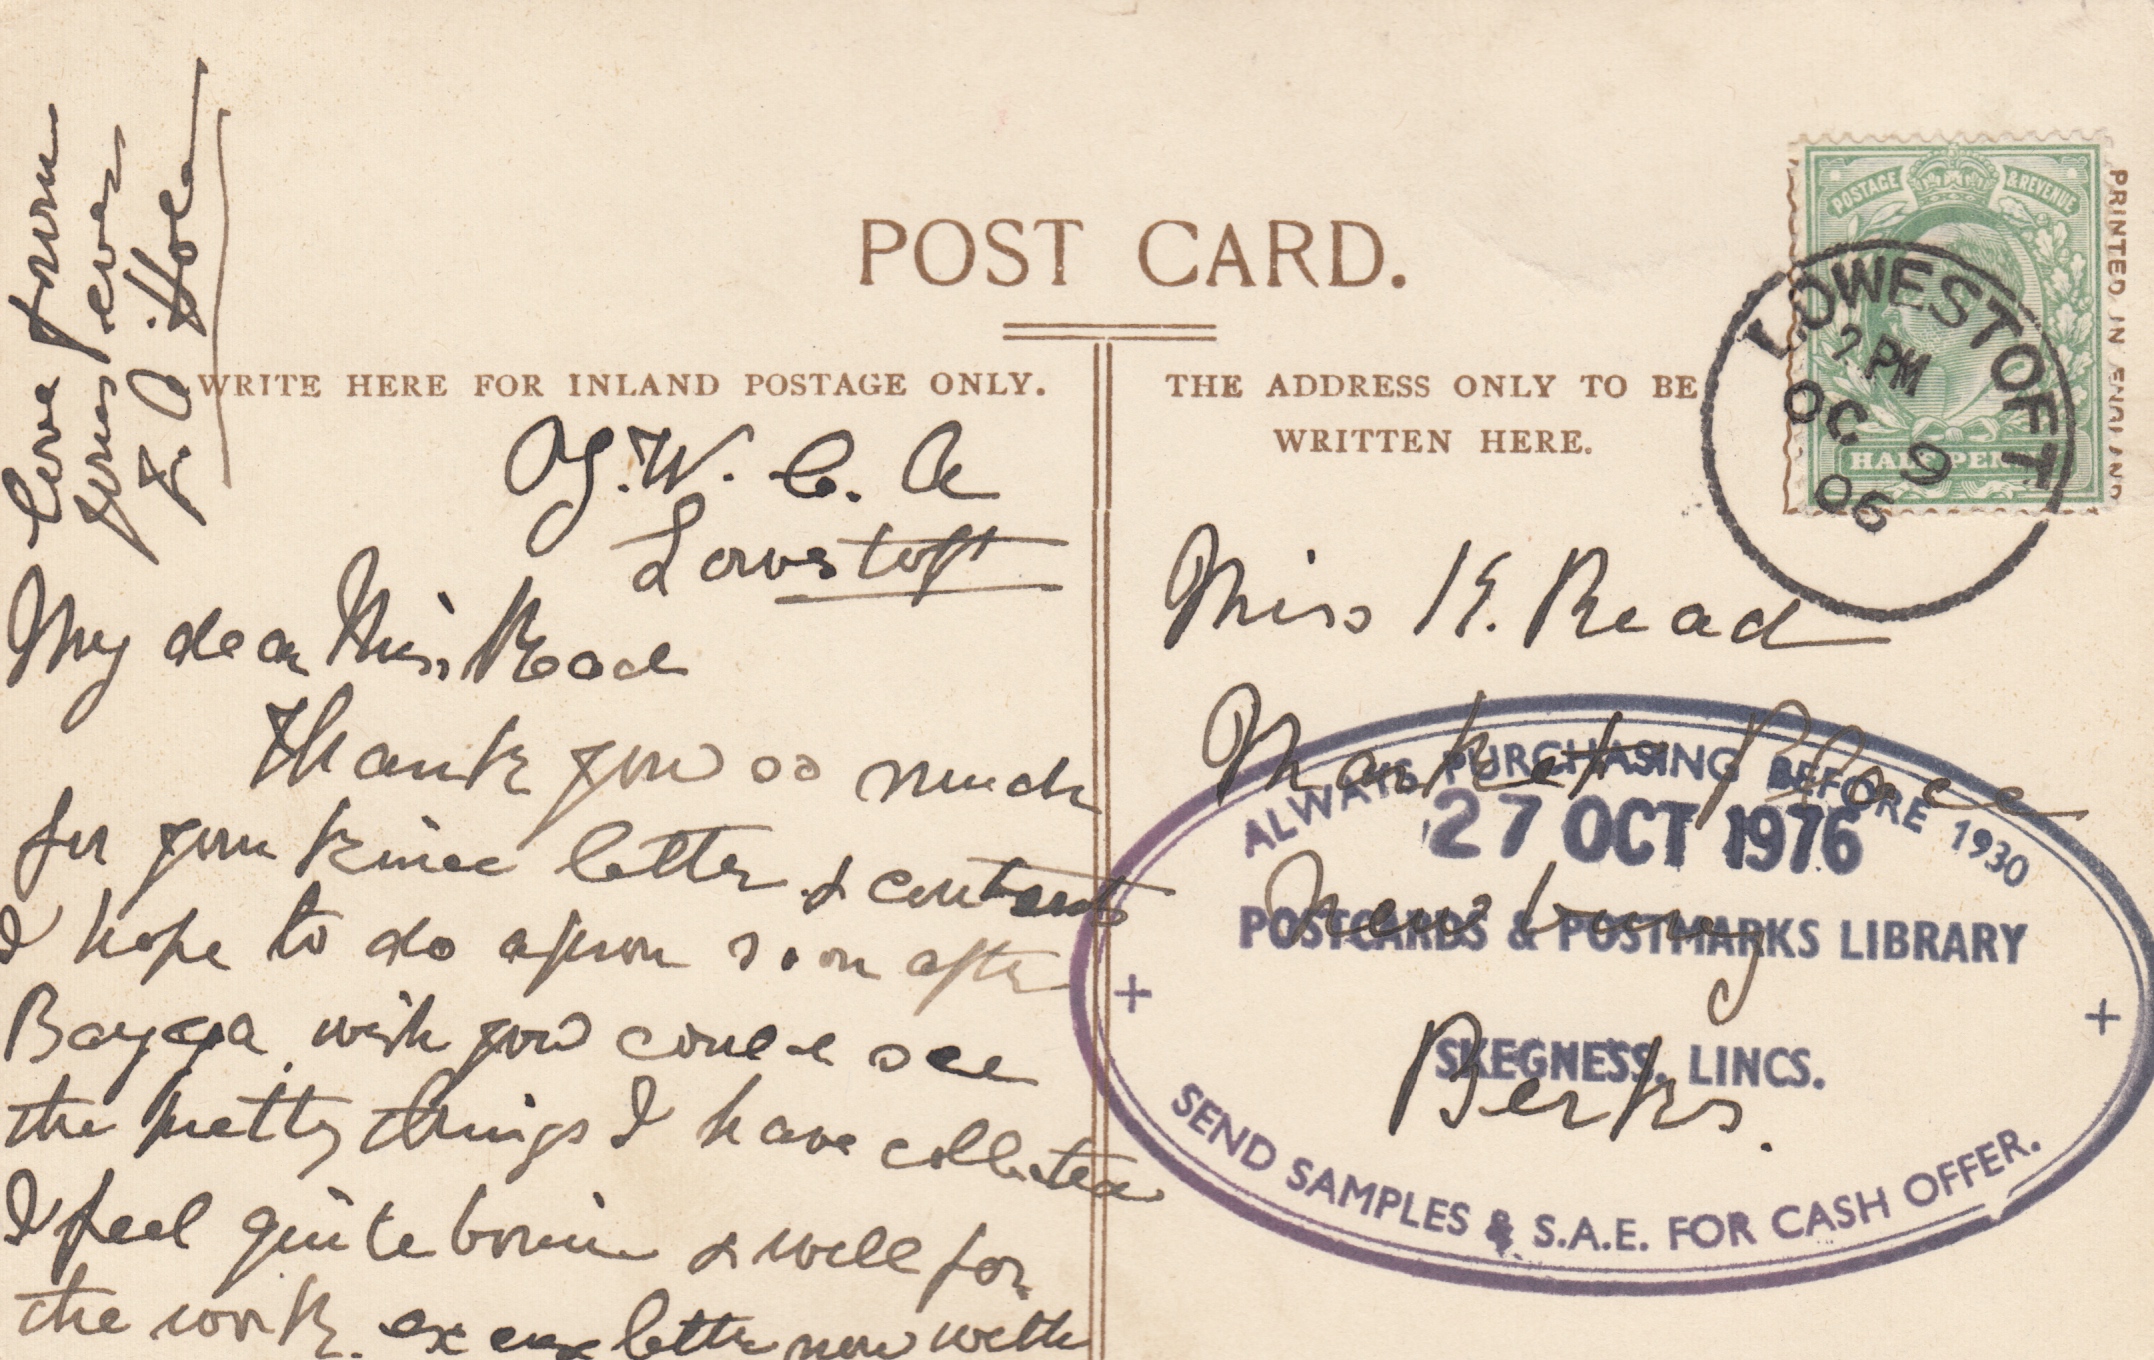 POST CARD.
WRITE HERE FOR INLAND POSTAGE ONLY.
THE ADDRESS ONLY TO BE
WRITTEN HERE.
PRINTED IN ENGLAND
POSTAGE & REVENUE
HALFPENNY
LOWESTOFT
7 PM
OC 9
06
Y.W.C.A
Lowestoft
My dear Miss Read
Thank you so much
for your kind letter & contents
I hope to do upon soon after
wish you could see
the pretty things I have collected
I feel quite & well for
the work. letter now with
Love from
yours ever
Miss K. Read
Market Place
Newbury
Berks.
ALWAYS PURCHASING BEFORE 1930
27 OCT 1976
POSTCARDS & POSTMARKS LIBRARY
SKEGNESS, LINCS.
SEND SAMPLES & S.A.E. FOR CASH OFFER.